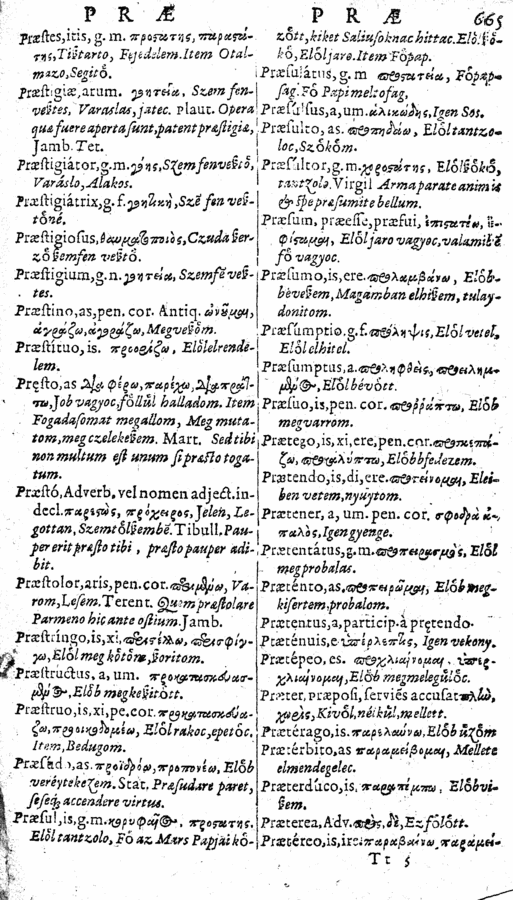 P R Æ
P R Æ
665
Præstes, itis, g. m. προςάτης, παραςά-
της, Tißtarto, Fejedelem. Item Otal-
mazo, Segitô.
Præstigiæ, arum. γοητεία, Szem fen-
veßtes, Varaslas, jatec. Plaut. Opera
quæ fuere aperta sunt, patent præstigiæ,
Jamb. Tet.
Præstigiátor, g. m. γόης, Szemfenveßtô,
Varáslo, Alakos.
Præstigiátrix, g. f. Szē fen veß-
tôné.
Præstigiosus, θαυματοποιὸς, Czuda ßer-
zô ßemfen veßtô.
Præstigium, g. n. γοητεία, Szemfē veß-
tes.
Præstino, as, pen. cor. Antiq. ὠνοῦμαι,
ἀγοράζω, Megveßôm.
Præstítuo, is. προορίζω, Elôlelrende-
lem.
Pręsto, as φέρω, παρέχω,
Job vagyoc, fôllŭl halladom. Item
Fogadasomat megallom, Meg muta-
tom, meg czelekeßem. Mart. Sed tibi
non multum est unum si præsto toga-
tum.
Præstó, Adverb, vel nomen adject. in-
decl. παρεςὼς, πρόχειρος, Jelen, Le-
gottan, Szemtôlßembē. Tibull. Pau-
per erit præsto tibi, præsto pauper adi-
bit.
Præstolor, aris, pen. cor. Va-
rom, Lesem. Terent. Quem præstolare
Parmeno hic ante ostium. Jamb.
Præstringo, is, xi,
Elôl meg kôtôm, ßoritom.
Præstructus, a, um.
Elôb megkeßitôtt.
Præstruo, is, xi, pe. cor. προκατασκευά-
ζω, προοικοδομέω, Elôl rakoc, epetôc.
Item, Bedugom.
Præsŭdo, as. προϊδρόω, προπονέω, Elôb
veréytekezem. Stat. Præsudare paret,
seseq; accendere virtus.
Præsul, is, g. m. προςάτης.
Elôl tantzolo, Fô az Mars Papjai kô-
zôtt, kiket Saliusoknac hittac. Elôlßô-
kô, Elôl jaro. Item Fôpap.
Præsulátus, g. m Fôpap-
sag. Fô Papi meltosag.
Præsulsus, a, um. ἁλικώδης, Igen Sos.
Præsulto, as. Elôl tantzo-
loc, Szôkôm.
Præsultor, g. m. Elôlßôkô,
tantzolo. Virgil Arma parate animis
& spe præsumite bellum.
Præsum, præesse, præfui, ἐπιςατέω,
Elôl jaro vagyoc, valamibē
fô vagyoc.
Præsumo, is, ere. προλαμβάνω, Elôb-
bèveßem, Magamban elhißem, tulay-
donitom.
Præsumptio, g. f. πρόληψις, Elôl vetel,
Elôl elhitel.
Præsumptus, a. προληφθεὶς,
Elôl bévôtt.
Præsuo, is, pen. cor. Elôb
megvarrom.
Prætego, is, xi, ere, pen. cor.
Elôbbfedezem.
Prætendo, is, di, ere. προτείνομαι, Elei-
ben vetem, nyuytom.
Prætener, a, um. pen. cor. σφοδρὰ ἁ-
παλὸς, Igen gyenge.
Prætentátus, g. m. Elôl
megprobalas.
Præténto, as. Elôb meg-
kisertem, probalom.
Prætentus, a, particip. à prętendo.
Præténuis, e Igen vekony.
Prætépeo, es.
Elôb megmelegŭlôc.
Præter, præposi, serviēs accusat. πλὼ,
χωρὶς, Kivôl, nélkŭl, mellett.
Prætérago, is. παρελαύνω, Elôb ŭzôm
Prætérbito, as παραμείβομαι, Mellete
elmendegelec.
Præterdúco, is. παραπέμπω, Elôb vi-
ßem.
Præterea, Adv. Ez fôlôtt.
Prætéreo, is, ire παραβαίνω παραμεί-
Tt 5